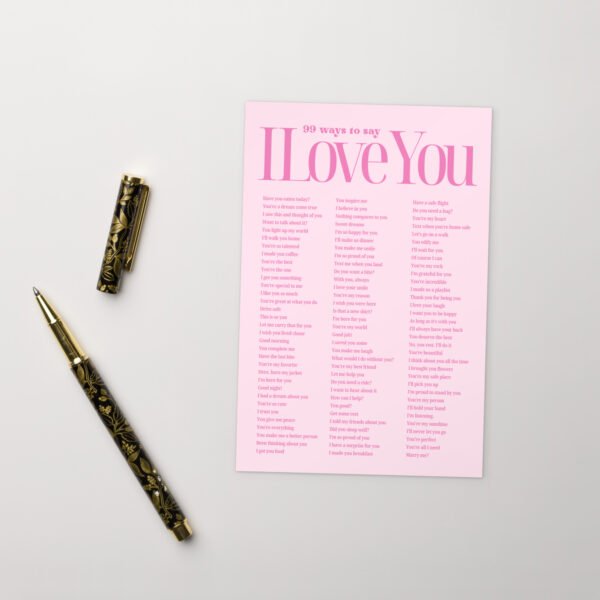 99 ways to say
I Love You
Have you eaten today?
You're a dream come true
I saw this and thought of you
Want to talk about it?
You light up my world
I'll walk you home
You're so talented
I made you coffee
You're the best
You're the one
I got you something
You're special to me
I like you so much
You're great at what you do
Drive safe
This is so you
Let me carry that for you
I wish you lived closer
Good morning
You complete me
Have the last bite
You're my favorite
Here, have my jacket
I'm here for you
Good night!
I had a dream about you
You're so cute
I trust you
You give me peace
You're everything
You make me a better person
Been thinking about you
I got you food
You inspire me
I believe in you
Nothing compares to you
Sweet dreams
I'm so happy for you
I'll make us dinner
You make me smile
I'm so proud of you
Text me when you land
Do you want a bite?
With you, always
I love your smile
You're my reason
I wish you were here
Is that a new shirt?
I'm here for you
You're my world
Good job!
I saved you some
You make me laugh
What would I do without you?
You're my best friend
Let me help you
Do you need a ride?
I want to hear about it
How can I help?
You good?
Get some rest
I told my friends about you
Did you sleep well?
I'm so proud of you
I have a surprise for you
I made you breakfast
Have a safe flight
Do you need a hug?
You're my heart
Text when you're home safe
Let's go on a walk
You uplift me
I'll wait for you
Of course I can
You're my rock
I'm grateful for you
You're incredible
I made us a playlist
Thank you for being you
I love your laugh
I want you to be happy
As long as it's with you
I'll always have your back
You deserve the best
No, you rest. I'll do it
You're beautiful
I think about you all the time
I brought you flowers
You're my safe place
I'll pick you up
I'm proud to stand by you
You're my person
I'll hold your hand
I'm listening
You're my sunshine
I'll never let you go
You're perfect
You're all I need
Marry me?